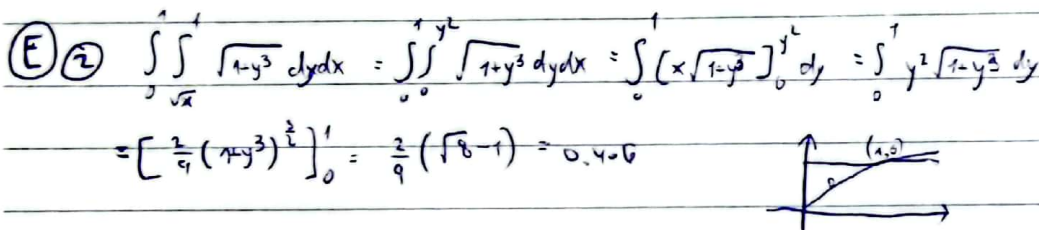 Ⓔ ② ∫₀¹ ∫_{√x}^1 √(1+y³) dydx = ∫₀¹ ∫₀^{y²} √(1+y³) dydx = ∫₀¹ [x√(1+y³)]₀^{y²} dy = ∫₀¹ y²√(1+y³) dy
= [2/9 (1+y³)^{3/2}]₀¹ = 2/9 (√8-1) = 0.406